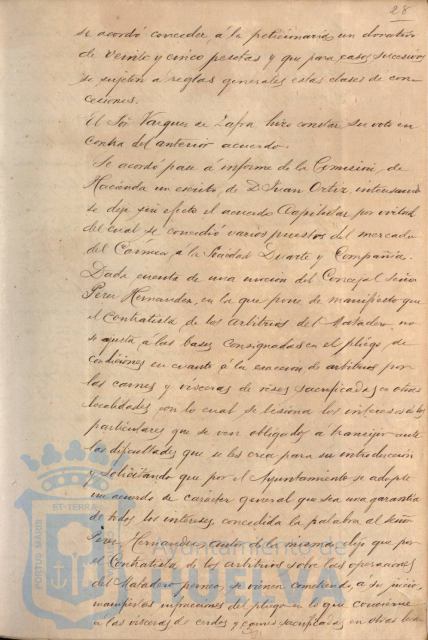 28
se acordó conceder, á la peticionaria, un donativo
de veinte y cinco pesetas y que para casos sucesivos
se sujeten á reglas generales estas clases de con-
cesiones.
El Sor Vazquez de Zafra hizo constar su voto en
contra del anterior acuerdo.
Se acordó pase á informe de la Comisión, de
Hacienda un escrito, de D. Juan Ortiz, interesando
se deje sin efecto el acuerdo Capitular por virtud
del cual se concedió varios puestos del mercado
del Cármen á la Sociedad Duarte y Compañia.
Dada cuenta de una moción del Concejal Señor
Perez Hernandez, en la que pone de manifiesto que
el Contratista de los arbitrios del Matadero, no
se ajusta á las bases consignadas en el pliego de
condiciones en cuanto á la exaccion de arbitrios por
las carnes y visceras de reses sacrificadas en otras
localidades, con lo cual se lesiona los intereses de los
particulares que se ven obligados á transijir ante
las dificultades que se les crea para su introducción
y solicitando que por el Ayuntamiento se adopte
un acuerdo de carácter general que sea una garantia
de todos los intereses, concedida la palabra al señor
Perez Hernandez, autor de la misma, dijo que por
el Contratista de los arbitrios sobre las operaciones
del Matadero publico, se vienen cometiendo, a su juicio,
manifiestas infracciones del pliego en lo que concierne
á las visceras de cerdos y carnes sacrificadas en otras
PORTUS MARIS
ET TERRA
Ayuntamiento de
HUELVA